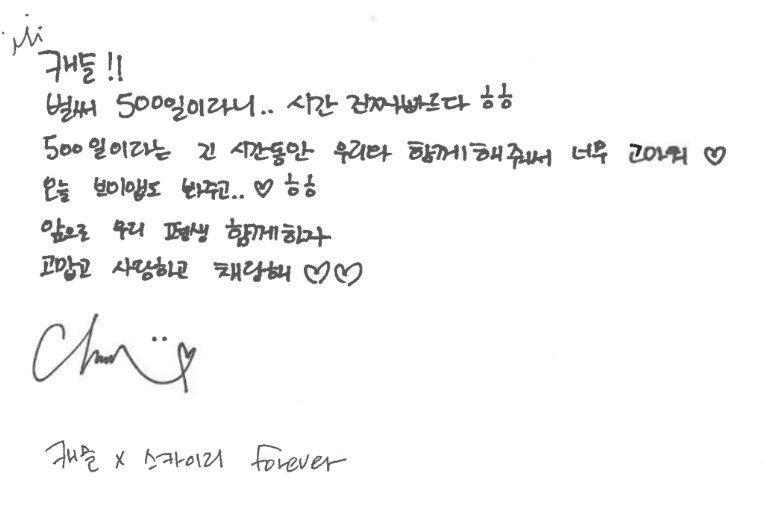 캐슬!!
벌써 500일이라니.. 시간 진짜빠르다 ㅎㅎ
500일이라는 긴 시간동안 우리와 함께해줘서 너무 고마워 ♡
오늘 브이앱도 봐주고..♡ ㅎㅎ
앞으로 우리 평생 함께하자
고맙고 사랑하고 채랑해 ♡♡
캐슬 x 스카이리 forever